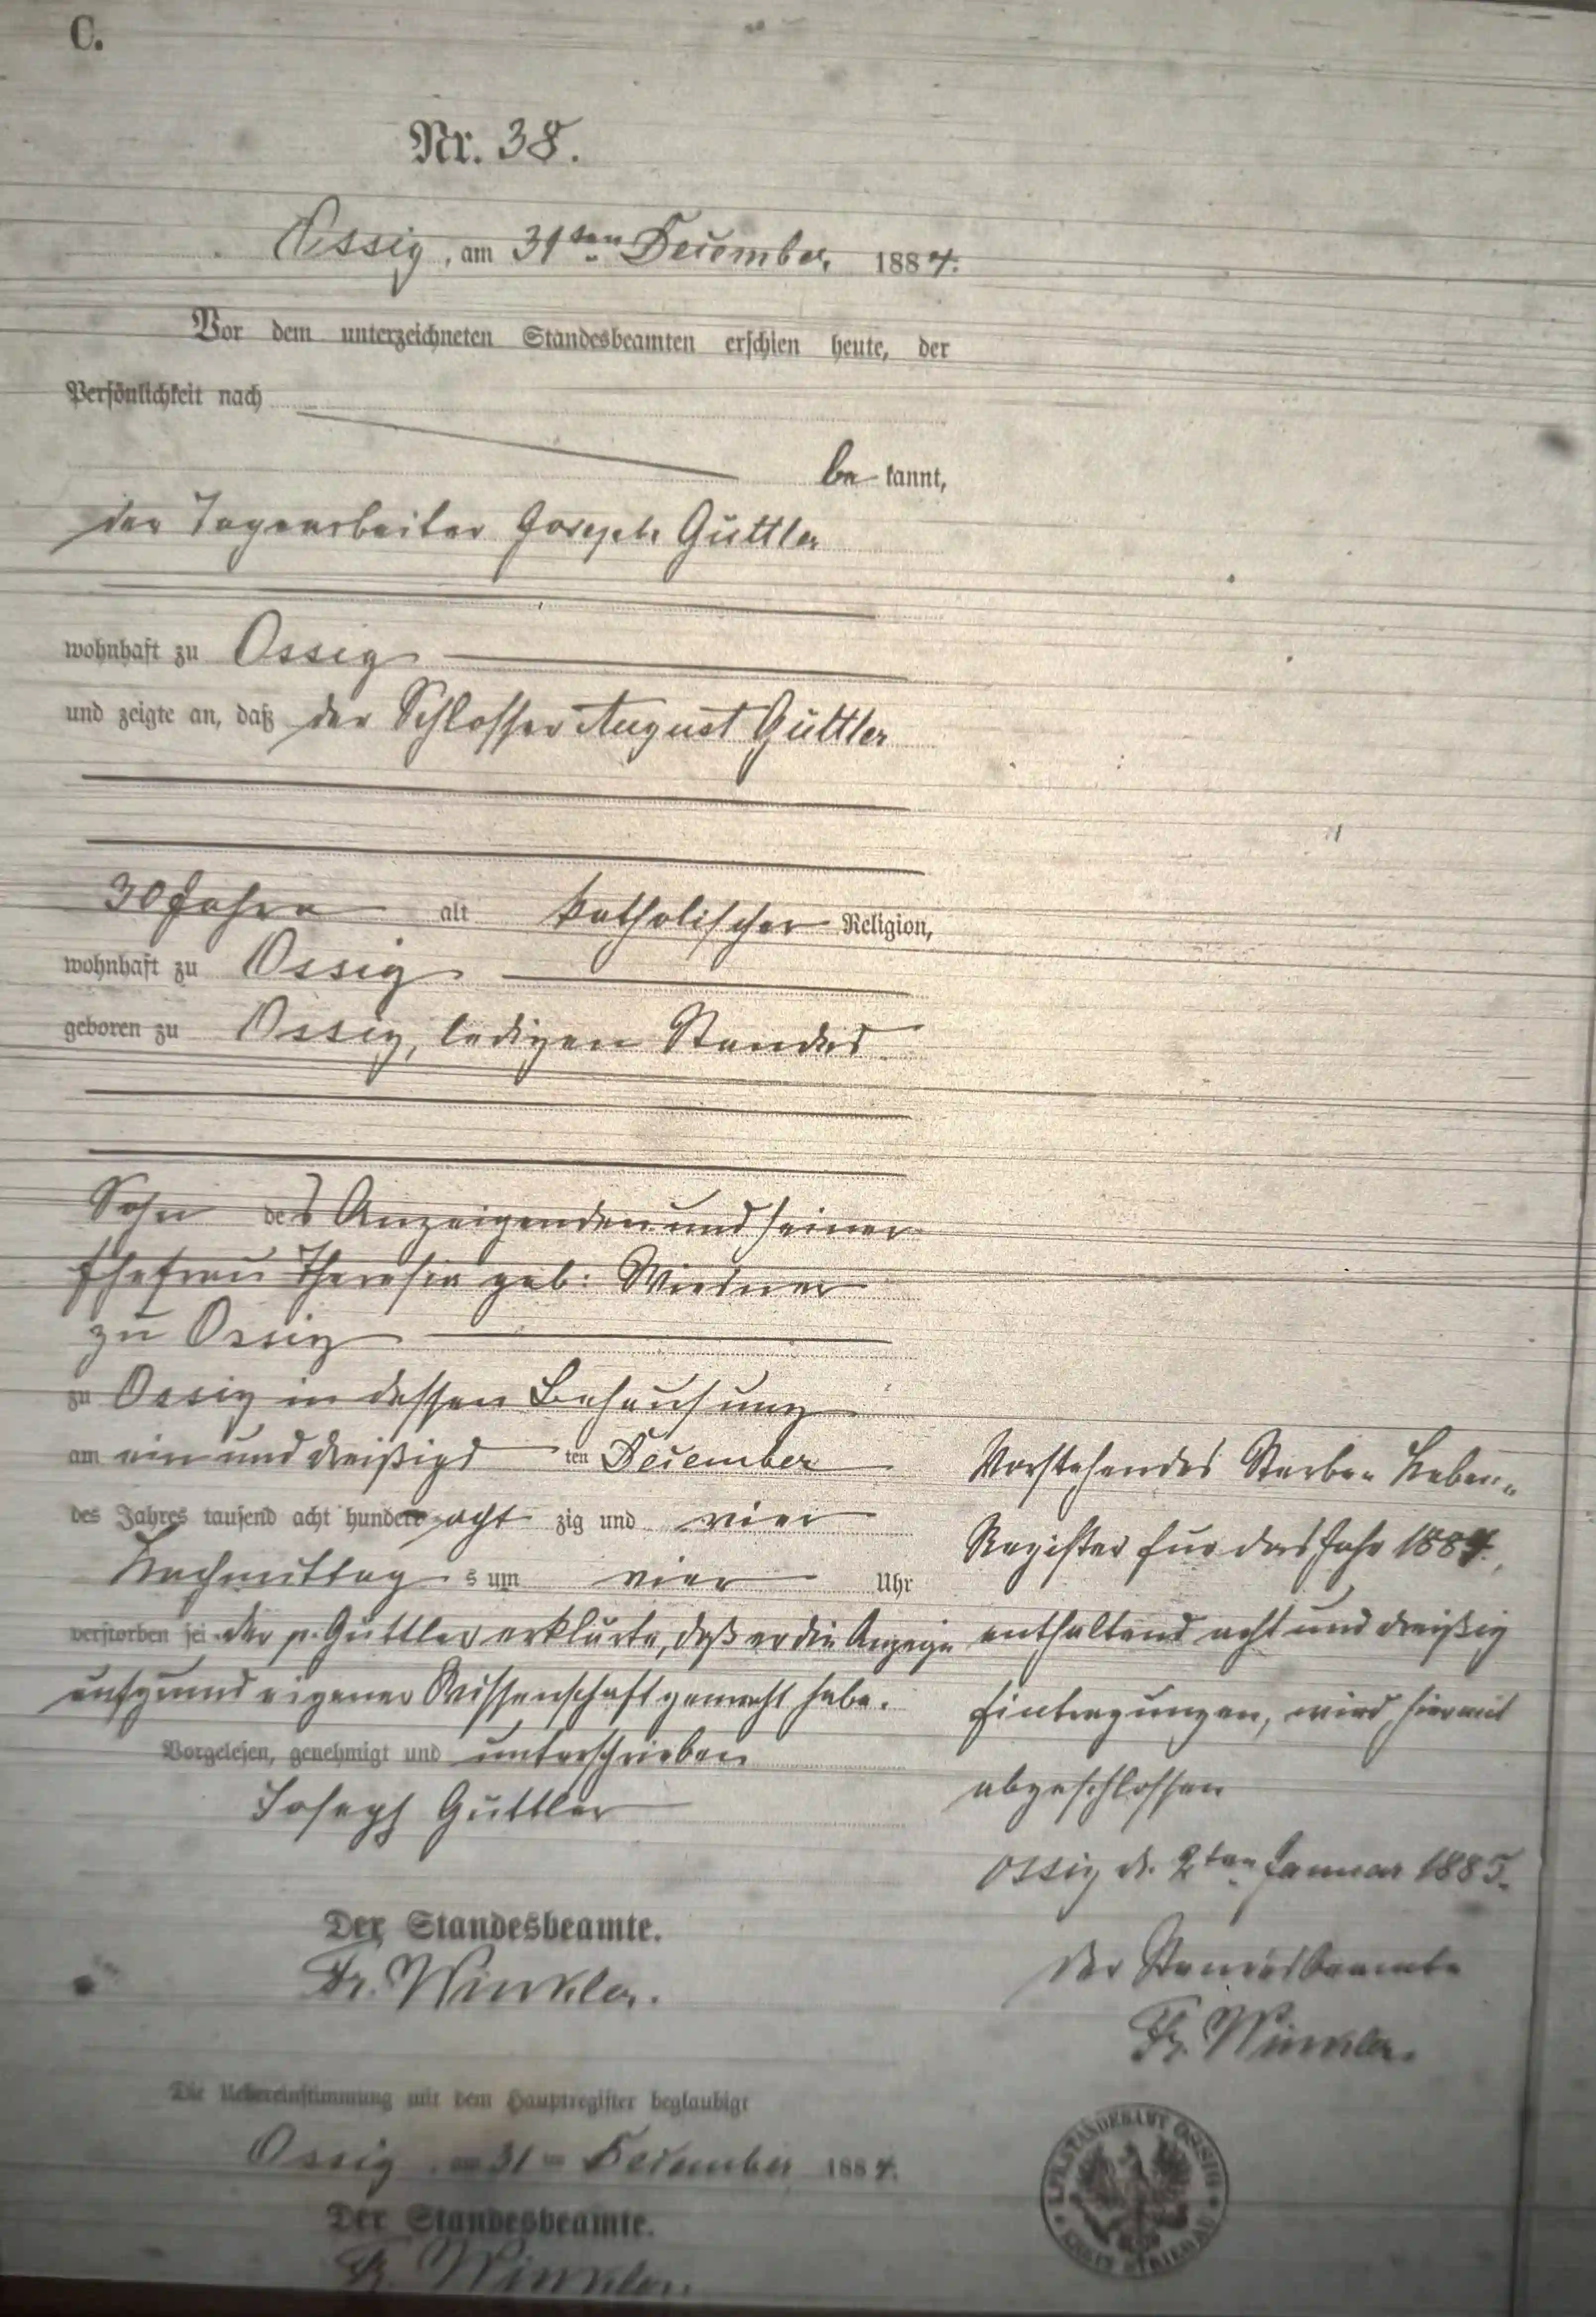 C.
Nr. 38.
Ossig, am 31ten December 1884.
Vor dem unterzeichneten Standesbeamten erschien heute, der
Persönlichkeit nach
be kannt,
der Tagearbeiter Joseph Güttler
wohnhaft zu Ossig
und zeigte an, daß der Schlosser August Güttler
30 Jahre alt katholischer Religion,
wohnhaft zu Ossig
geboren zu Ossig, ledigen Standes
Sohn des Anzeigenden und seiner
Ehefrau Theresia geb: Wiesner
zu Ossig
zu Ossig in dessen Behausung
am ein und dreißigs ten December
des Jahres tausend acht hundert acht zig und vier
Nachmittag s um vier Uhr
verstorben sei. der p. Güttler erklärte, daß er die Anzeige
aufgrund eigener Wissenschaft gemacht habe.
Vorgelesen, genehmigt und unterschrieben
Joseph Güttler
Der Standesbeamte.
Fr. Winkler.
Die Uebereinstimmung mit dem Hauptregister beglaubigt
Ossig, am 31ten December 1884.
Der Standesbeamte.
Fr. Winkler.
Vorstehendes Sterbe- Neben-
Register für das Jahr 1884,
enthaltend acht und dreißig
Eintragungen, wird hiermit
abgeschlossen
Ossig d. 2ten Januar 1885.
Der Standesbeamte
Fr. Winkler.
STANDESAMT OSSIG
KREIS STRIEGAU